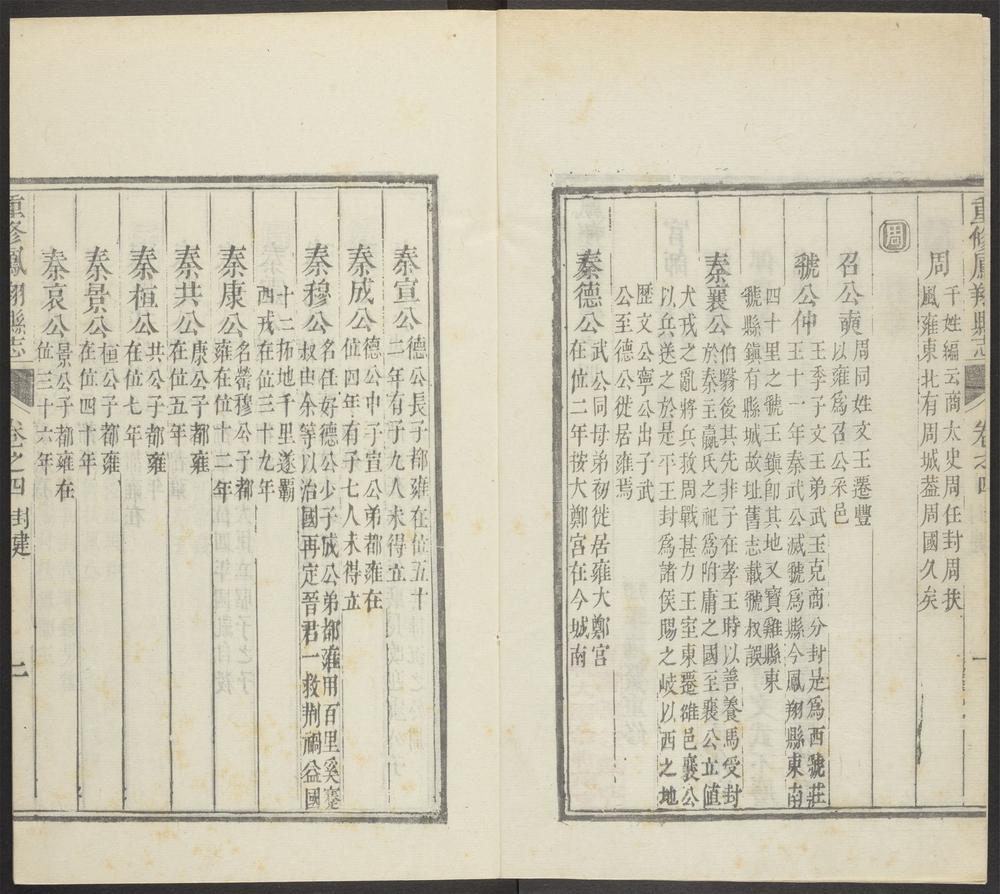 重修鳳翔縣志
卷之四
一
周
千姓編云商太史周任封周扶
風雍東北有周城葢周國久矣
周
召公奭
周同姓文王遷豐
以雍爲召公采邑
虢公仲
王季子文王弟武王克商分封是爲西虢莊
王十一年秦武公滅虢爲縣今鳳翔縣東南
四十里之虢王鎮卽其地又寶雞縣東
虢縣鎮有縣城故址舊志載虢叔誤
秦襄公
伯翳後其先非子在孝王時以善養馬受封
於秦主嬴氏之祀爲附庸之國至襄公立值
犬戎之亂將兵救周戰甚力王室東遷雒邑襄公
以兵送之於是平王封爲諸侯賜之岐以西之地
歷文公寧公出子武
公至德公徙居雍焉
秦德公
武公同母弟初徙居雍大鄭宮
在位二年按大鄭宮在今城南
秦宣公
德公長子都雍在位五十
二年有子九人未得立
秦成公
德公中子宣公弟都雍在
位四年有子七人未得立
秦穆公
名任好德公少子成公弟都雍用百里奚蹇
叔由余等以治國再定晉君一救荆禍益國
十二拓地千里遂霸
西戎在位三十九年
秦康公
名罃穆公子都
雍在位十二年
秦共公
康公子都雍
在位五年
秦桓公
共公子都雍
在位七年
秦景公
桓公子都雍
在位四十年
秦哀公
景公子都雍在
位三十六年
重修鳳翔縣志
卷之四
封建